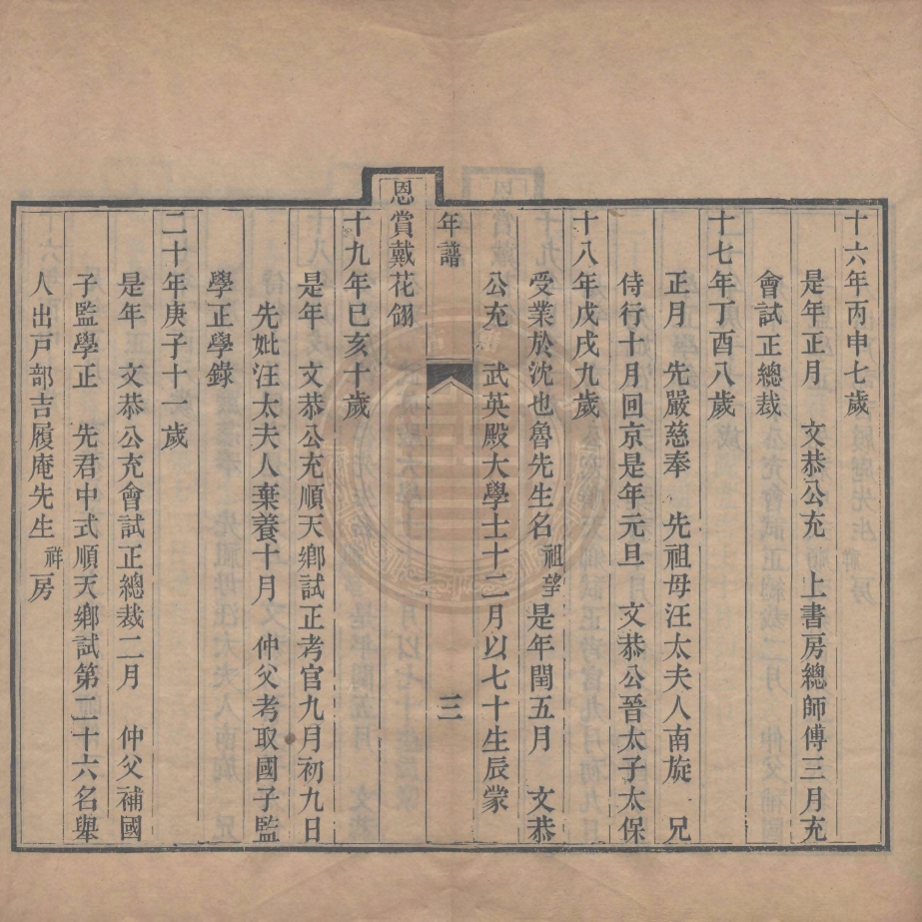 十六年丙申七歲
是年正月　文恭公充　上書房總師傅三月充
會試正總裁
十七年丁酉八歲
正月　先嚴慈奉　先祖母汪太夫人南旋　兄
侍行十月回京是年元旦　文恭公晉太子太保
十八年戊戌九歲
受業於沈也魯先生名祖望是年閏五月　文恭
公充　武英殿大學士十二月以七十生辰蒙
年譜　三
恩賞戴花翎
十九年已亥十歲
是年　文恭公充順天鄉試正考官九月初九日
先妣汪太夫人棄養十月　仲父考取國子監
學正學錄
二十年庚子十一歲
是年　文恭公充會試正總裁二月　仲父補國
子監學正　先君中式順天鄉試第二十六名舉
人出戸部吉履庵先生祥房